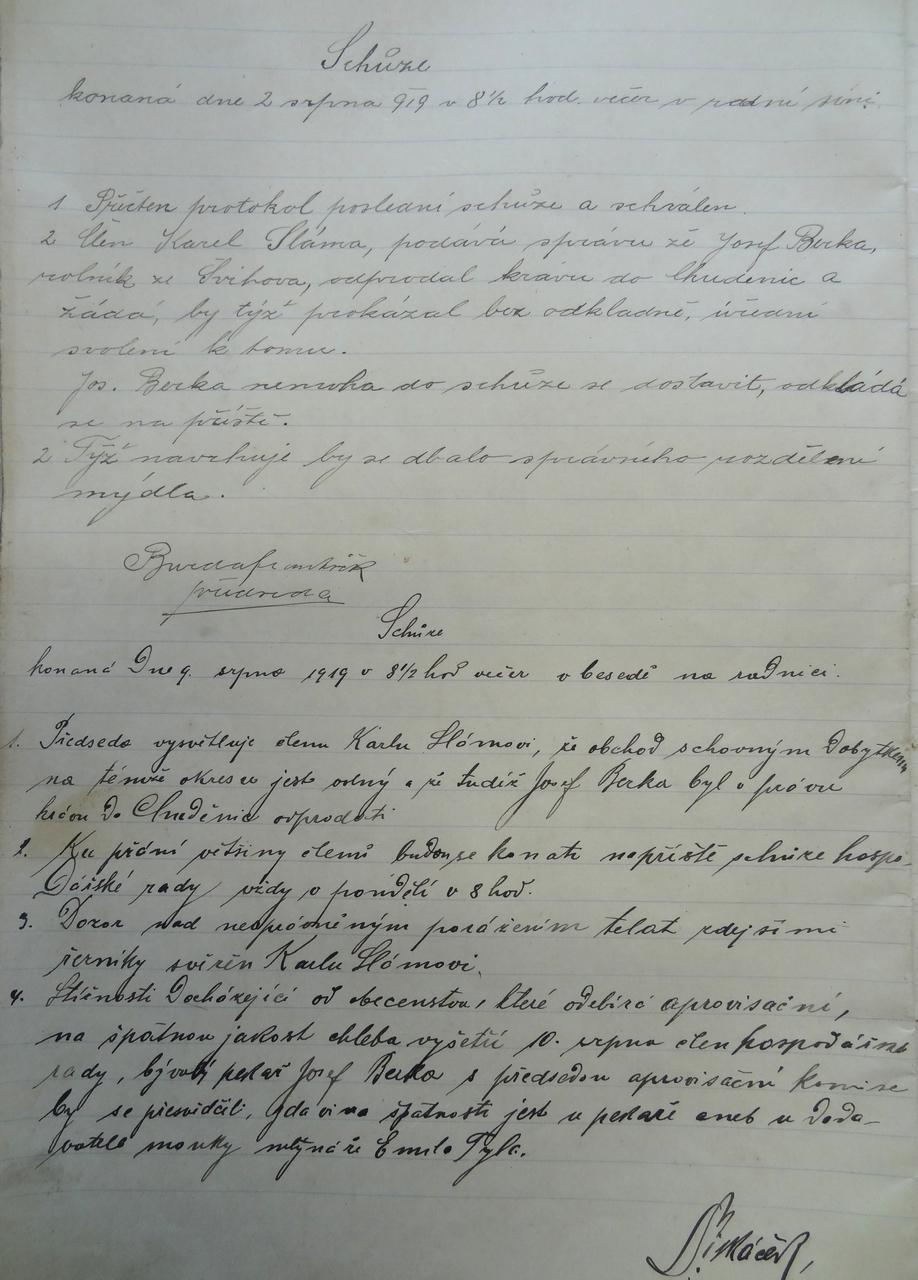 Schůze
konaná dne 2 srpna 919 v 8½ hod. večer v radní síni.
1 Přečten protokol poslední schůze a schválen.
2 Člen Karel Sláma, podává správu že Josef Berka,
rolník ze Švihova, odprodal krávu do Chudenic a
žádá, by týž prokázal bez odkladně, úřední
svolení k tomu.
Jos. Berka nemoha do schůze se dostavit, odkládá
se na příště.
2 Týž navrhuje by se dbalo správného rozdělení
mýdla.
předseda
Schůze
konaná Dne 9. srpna 1919 v 8½ hod večer v besedě na radnici.
1. Předseda vysvětluje členu Karlu Slámovi, že obchod s chovným Dobytkem
na témže okresu jest volný a že tudíž Josef Berka byl v právu
krávu Do Chuděnic odprodati
2. Ku přání většiny členů budou se konati napříště schůze hospo-
Dářské rady vždy v pondělí v 8 hod.
3. Dozor nad neoprávněným porážením telat zdejšími
řezníky svěřen Karlu Slámovi.
4. Stížnosti Docházející od obecenstva, které odebírá aprovisační,
na špatnou jakost chleba vyšetří 10. srpna člen hospodářské
rady, bývalý pekař Josef Berka s předsedou aprovisační komise
by se přesvědčili, zda vina špatnosti jest u pekaře aneb u Doda-
vatele mouky mlynáře Emila Pyla.